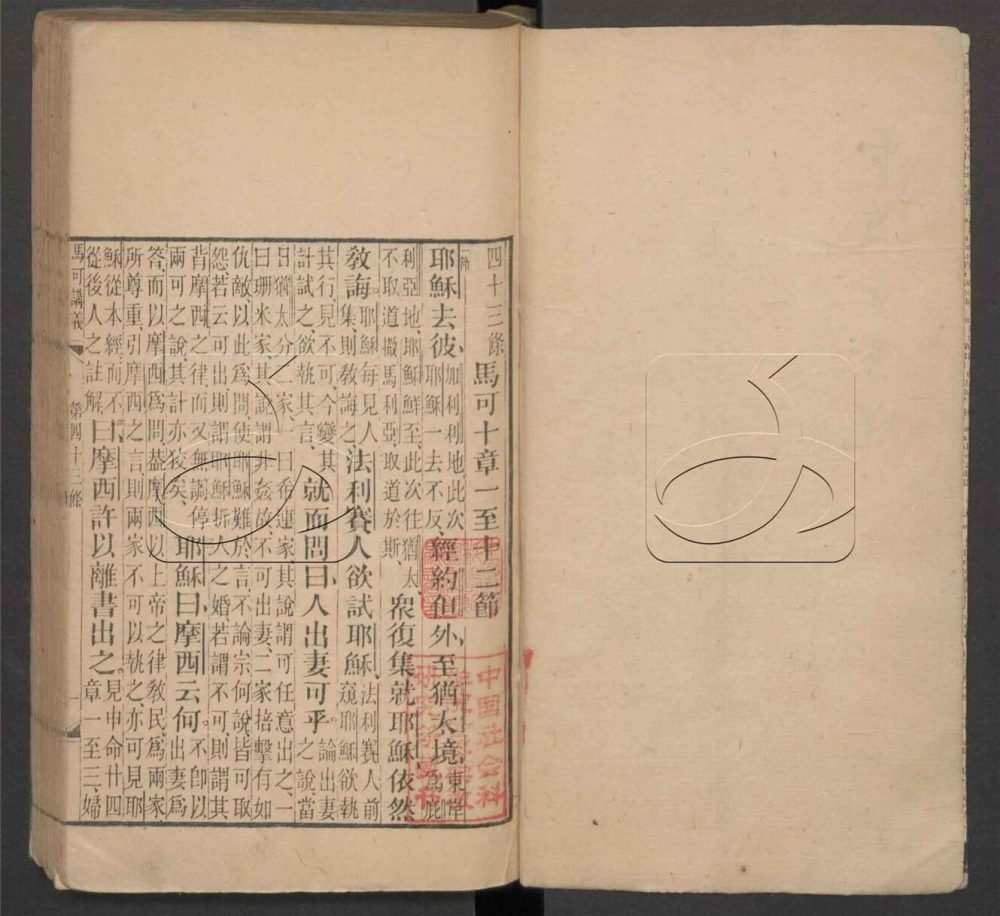 四十三條
馬可十章一至十二節
耶穌去彼、加利利地此次耶穌一去不反、經約但外、至猶太境、東岸為庇
利亞地、耶穌鮮至此、此次往猶太、不取道撒馬利亞、取道於斯、眾復集就耶穌、依然
教誨。耶穌每見人集、則教誨之、法利賽人欲試耶穌、法利賽人前窺耶穌、欲執
其行、見不可、今變其計試之、欲執其言、就而問曰、人出妻可乎。論出妻之說、當
日猶太分二家、一曰希連家、其說謂可任意出之、一
曰珊米家、其說謂非姦故、不可出妻、二家掊擊、有如
仇敵、以此為問、使耶穌難於言、不論宗何說、皆可取
怨、若云可出、則謂耶穌拆人之婚、若謂不可、則謂其
背摩西之律、而又無調停兩可之說、其計亦狡矣、耶穌曰、摩西云何。不即以出妻為
答、而以摩西為問、蓋摩西以上帝之律教民、為兩家
所尊重、引摩西之言、則兩家不可以執之、亦可見耶
穌從本經、而不從後人之註解、曰、摩西許以離書出之。見申命廿四章一至三、婦
馬可講義
第四十三條
一
中国社会科